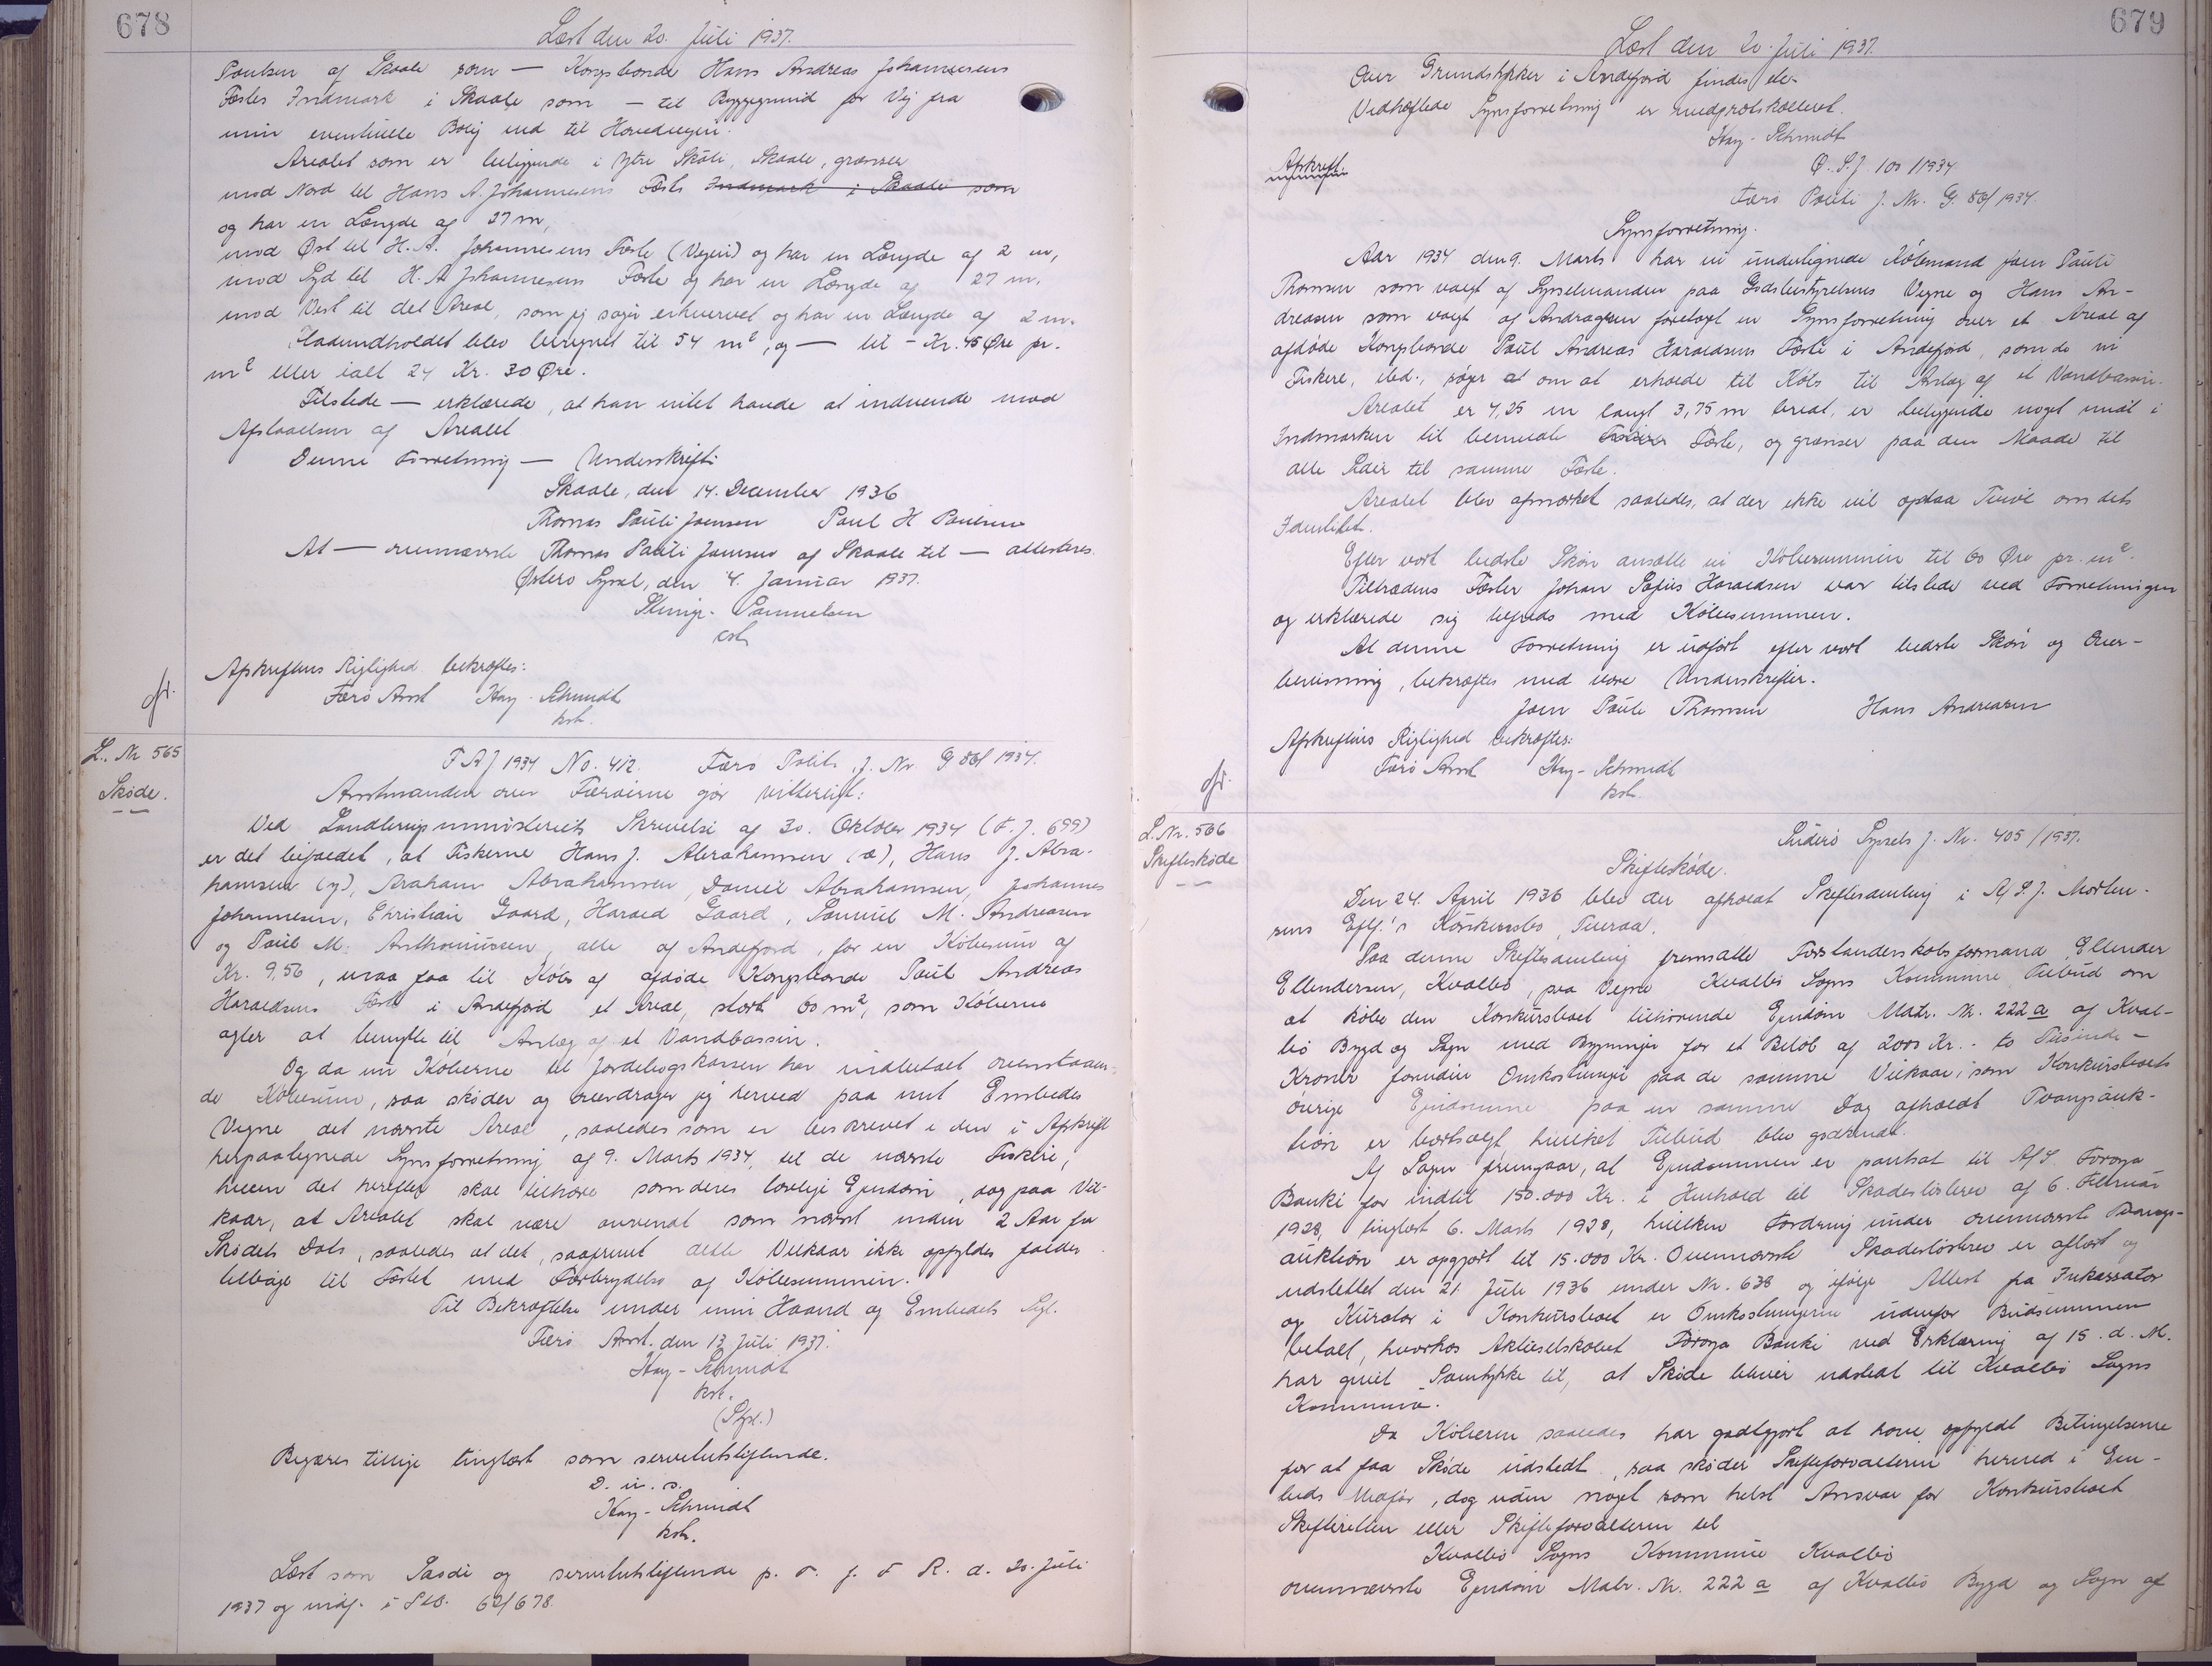 678
Læst den 20. Juli 1937.
Poulsen af Skaale som — Kongsbonde Hans Andreas Johannesens
Fæstes Indmark i Skaale som — til Byggegrund for Vej fra
min eventuelle Bolig ud til Hovedvejen.
Arealet som er beliggende i Ytre Skáli, Skaale, grænser
mod Nord til Hans A. Johannesens Fæste Indmark i Skaale som
og har en Længde af 27 m,
mod Øst til H. A. Johannesens Fæste (Vejen) og har en Længde af 2 m,
mod Syd til H. A Johannesens Fæste og har en Længde af 27 m.
mod Vest til det Areal, som jeg søger erhvervet og har en Længde af 2 m.
Fladeindholdet blev beregnet til 54 m², og — til - Kr. 45 Øre pr.
m² eller ialt 24 Kr. 30 Øre.
Tilstede — erklærede, at han intet havde at indvende mod
Afstaaelsen af Arealet
Denne Forretning — Underskrift:
Skaale, den 14. December 1936
Thomas Pauli Joensen Poul H Poulsen
At — ovennævnte Thomas Pauli Joensen af Skaale til — attesteres.
Østerø Syssel, den 4. Januar 1937.
Samuelsen
cst.
Afskriftens Rigtighed bekræftes:
Færø Amt Hay-Schmidt
kst.
L. Nr 565
Skøde.
F A J 1934 No. 412. Færø Politi J. Nr G 58/1934.
Amtmanden over Færøerne gør vitterligt:
Ved Landbrugsministeriets Skrivelse af 30. Oktober 1934 (F. J. 699)
er det bifaldet, at Fiskerne Hans J. Abrahamsen (æ), Hans J. Abra-
hamsen (y), Araham Abrahamsen, Daniel Abrahamsen, Johannes
Johannesen, Christian Gaard, Harald Gaard, Samuel M. Andreasen
og Poul M. Anthoniussen, alle af Andefjord, for en Købesum af
Kr. 9,56, maa faa til Købs af afdøde Kongsbonde Poul Andreas
Haraldsens Fæste i Andefjord et Areal, stort 60 m², som Køberne
agter at benytte til Anlæg af et Vandbassin.
Og da nu Køberne til Jordebogskassen har indbetalt ovenstaaen-
de Købesum, saa skøder og overdrager jeg herved paa mit Embedes
Vegne det nævnte Areal, saaledes som er beskrevet i den i Afskrift
herpaategnede Synsforretning af 9. Marts 1934, til de nævnte Fiskere,
hvem det herefter skal tilhøre som deres lovlige Ejendom, dog paa Vil-
kaar, at Arealet skal være anvendt som nævnt inden 2 Aar fra
Skødets Dato, saaledes at det, saafremt dette Vilkaar ikke opfyldes falder
tilbage til Fæstet med Fortrydelse af Købesummen.
Til Bekræftelse under min Haand og Embedets Segl.
Færø Amt, den 13 Juli 1937.
Hay-Schmidt
kst.
Begæres tillige tinglæst som servitutstiftende.
D. u. s.
Hay-Schmidt
kst.
Læst som Skøde og servitutstiftende p. o. f. F R. d. 20. Juli
1937 og indf. i Skb. 62/678
679
Læst den 20. Juli 1937.
Over Grundstykker i Andefjord findes ele-
Vedhæftede Synsforretning er medprotokolleret.
Hay-Schmidt
Afskrift.
Ø. S. J. 100/1934
Færø Politi J. Nr. G. 58/1934.
Synsforretning.
Aar 1934 den 9. Marts har vi undertegnede Købmand Joen Pauli
Thomsen som valgt af Sysselmanden paa Godsbestyrelsens Vegne og Hans An-
dreasen som valgt af Andrageren foretaget en Synsforretning over et Areal af
afdøde Kongsbonde Poul Andreas Haraldsens Fæste i Andefjord, som de ni
Fiskere, ibd., søger at om at erholde til Købs til Anlæg af et Vandbassin.
Arealet er 4,25 m langt 3,75 m bredt, er beliggende noget inde i
Indmarken til bemeldte Fæste, og grænser paa den Maade til
alle Sider til samme Fæste.
Arealet blev afmærket saaledes, at der ikke vil opstaa Tvivl om dets
Identitet.
Efter vort bedste Skøn ansætte vi Købesummen til 60 Øre pr. m².
Tiltrædens Fæster Johan Sofus Haraldsen var tilstede ved Forretningen
og erklærede sig tilfreds med Købesummen.
At denne Forretning er udført efter vort bedste Skøn og Over-
bevisning, bekræftes med vore Underskrifter.
Joen Pauli Thomsen Hans Andreasen
Afskriftens Rigtighed bekræftes:
Færø Amt Hay-Schmidt
kst.
L. Nr. 566
Skifteskøde
Suderø Syssels J. Nr. 405/1937.
Skifteskøde.
Den 24. April 1936 blev der afholdt Skiftesamling i A/S J. Morten-
sens Eftf.'s Konkursbo, Tveraa.
Paa denne Skiftesamling fremsatte Forstanderskabsformand Ellender
Ellendersen, Kvalbø, paa Vegne Kvalbø Sogns Kommune Tilbud om
at købe den Konkursboet tilhørende Ejendom Matr. Nr. 222 a af Kval-
bø Bygd og Sogn med Bygninger for et Beløb af 2000 Kr. - to Tusinde -
Kroner foruden Omkostninger paa de samme Vilkaar, som Konkursboets
øvrige Ejendomme paa en samme Dag afholdt Tvangsauk-
tion er bortsolgt, hvilket Tilbud blev godkendt.
Af Sagen fremgaar, at Ejendommen er pantsat til A/S Føroya
Banki for indtil 150.000 Kr. i Henhold til Skadesløsbrev af 6. Februar
1928, tinglæst 6. Marts 1928, hvilken Fordring under ovennævnte Tvangs-
auktion er opgjort til 15.000 Kr. Ovennævnte Skadesløsbrev er aflæst og
udslettet den 21 Juli 1936 under Nr. 638 og ifølge Attest fra Inkassator
og Kurator i Konkursboet er Omkostningerne udenfor Budsummen
betalt, hvorhos Aktieselskabet Føroya Banki ved Erklæring af 15. d. M.
har givet Samtykke til, at Skøde bliver udstedt til Kvalbø Sogns
Kommune.
Da Køberen saaledes har godtgjort at have opfyldt Betingelserne
for at faa Skøde udstedt, saa skøder Skifteforvalteren herved i Em-
beds Medfør, dog uden noget som helst Ansvar for Konkursboet
Skifteretten eller Skifteforvalteren til
Kvalbø Sogns Kommune Kvalbø
ovennævnte Ejendom Matr. Nr. 222 a af Kvalbø Bygd og Sogn af